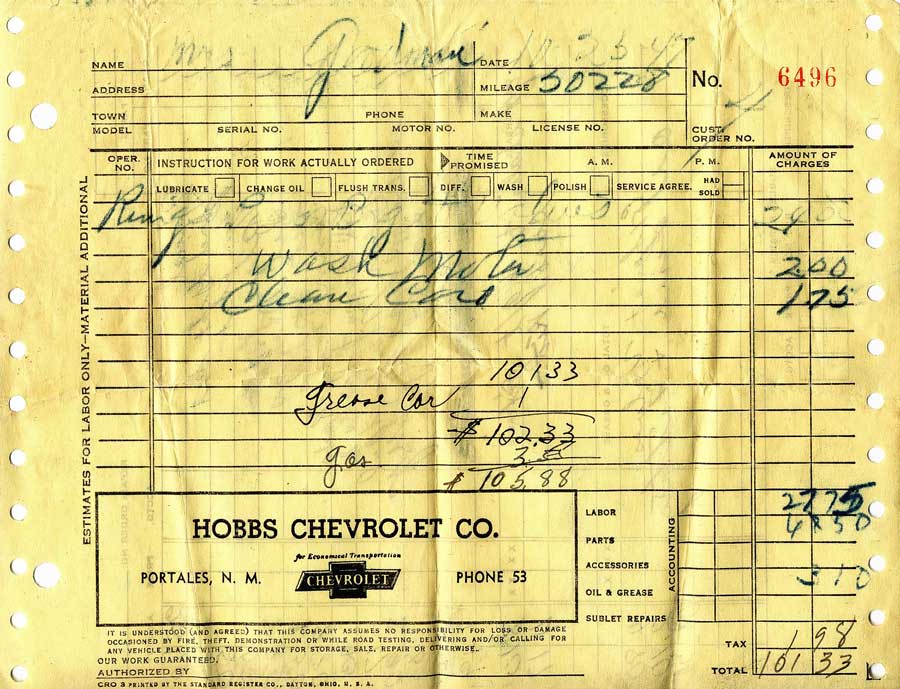 NAME Mrs Goodman DATE
ADDRESS MILEAGE 30228 No. 6496
TOWN PHONE MAKE
MODEL SERIAL NO. MOTOR NO. LICENSE NO. CUST. ORDER NO.
OPER. NO. INSTRUCTION FOR WORK ACTUALLY ORDERED TIME PROMISED A. M. P. M. AMOUNT OF CHARGES
LUBRICATE CHANGE OIL FLUSH TRANS. DIFF. WASH POLISH SERVICE AGREE. HAD SOLD
Wash Motor 2.00
Clean Car 1.75
10133
Grease Car 1
$ 102.33
gas
$ 105.88
ESTIMATES FOR LABOR ONLY—MATERIAL ADDITIONAL
HOBBS CHEVROLET CO.
for Economical Transportation
CHEVROLET
PORTALES, N. M. PHONE 53
ACCOUNTING
LABOR 2775
PARTS
ACCESSORIES
OIL & GREASE 310
SUBLET REPAIRS
TAX 1 98
TOTAL 101 33
IT IS UNDERSTOOD (AND AGREED) THAT THIS COMPANY ASSUMES NO RESPONSIBILITY FOR LOSS OR DAMAGE
OCCASIONED BY FIRE, THEFT, DEMONSTRATION OR WHILE ROAD TESTING, DELIVERING AND/OR CALLING FOR
ANY VEHICLE PLACED WITH THIS COMPANY FOR STORAGE, SALE, REPAIR OR OTHERWISE.
OUR WORK GUARANTEED.
AUTHORIZED BY
CRO 3 PRINTED BY THE STANDARD REGISTER CO., DAYTON, OHIO, U. S. A.